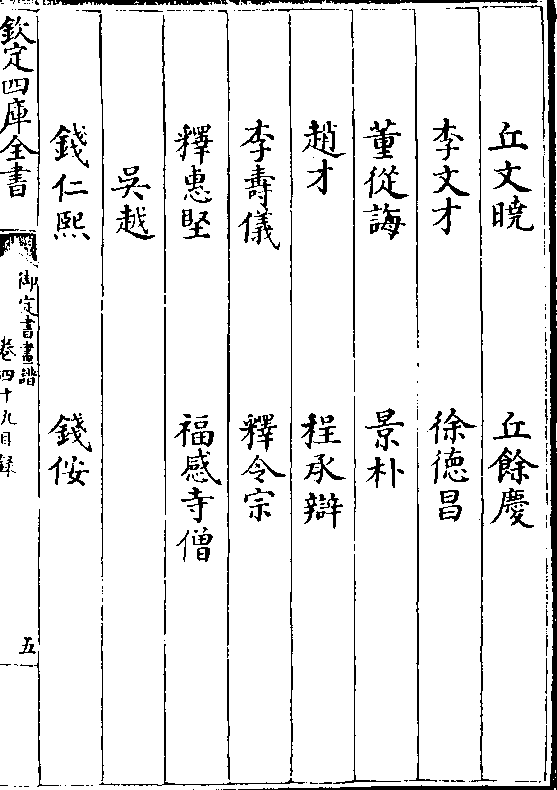 丘文曉　丘餘慶
李文才　徐德昌
董從誨　景朴
趙才　程承辯
李壽儀　釋令宗
釋惠堅　福感寺僧
吳越
錢仁熙　錢侒
欽定四庫全書
御定書畫譜
卷四十九目録
五